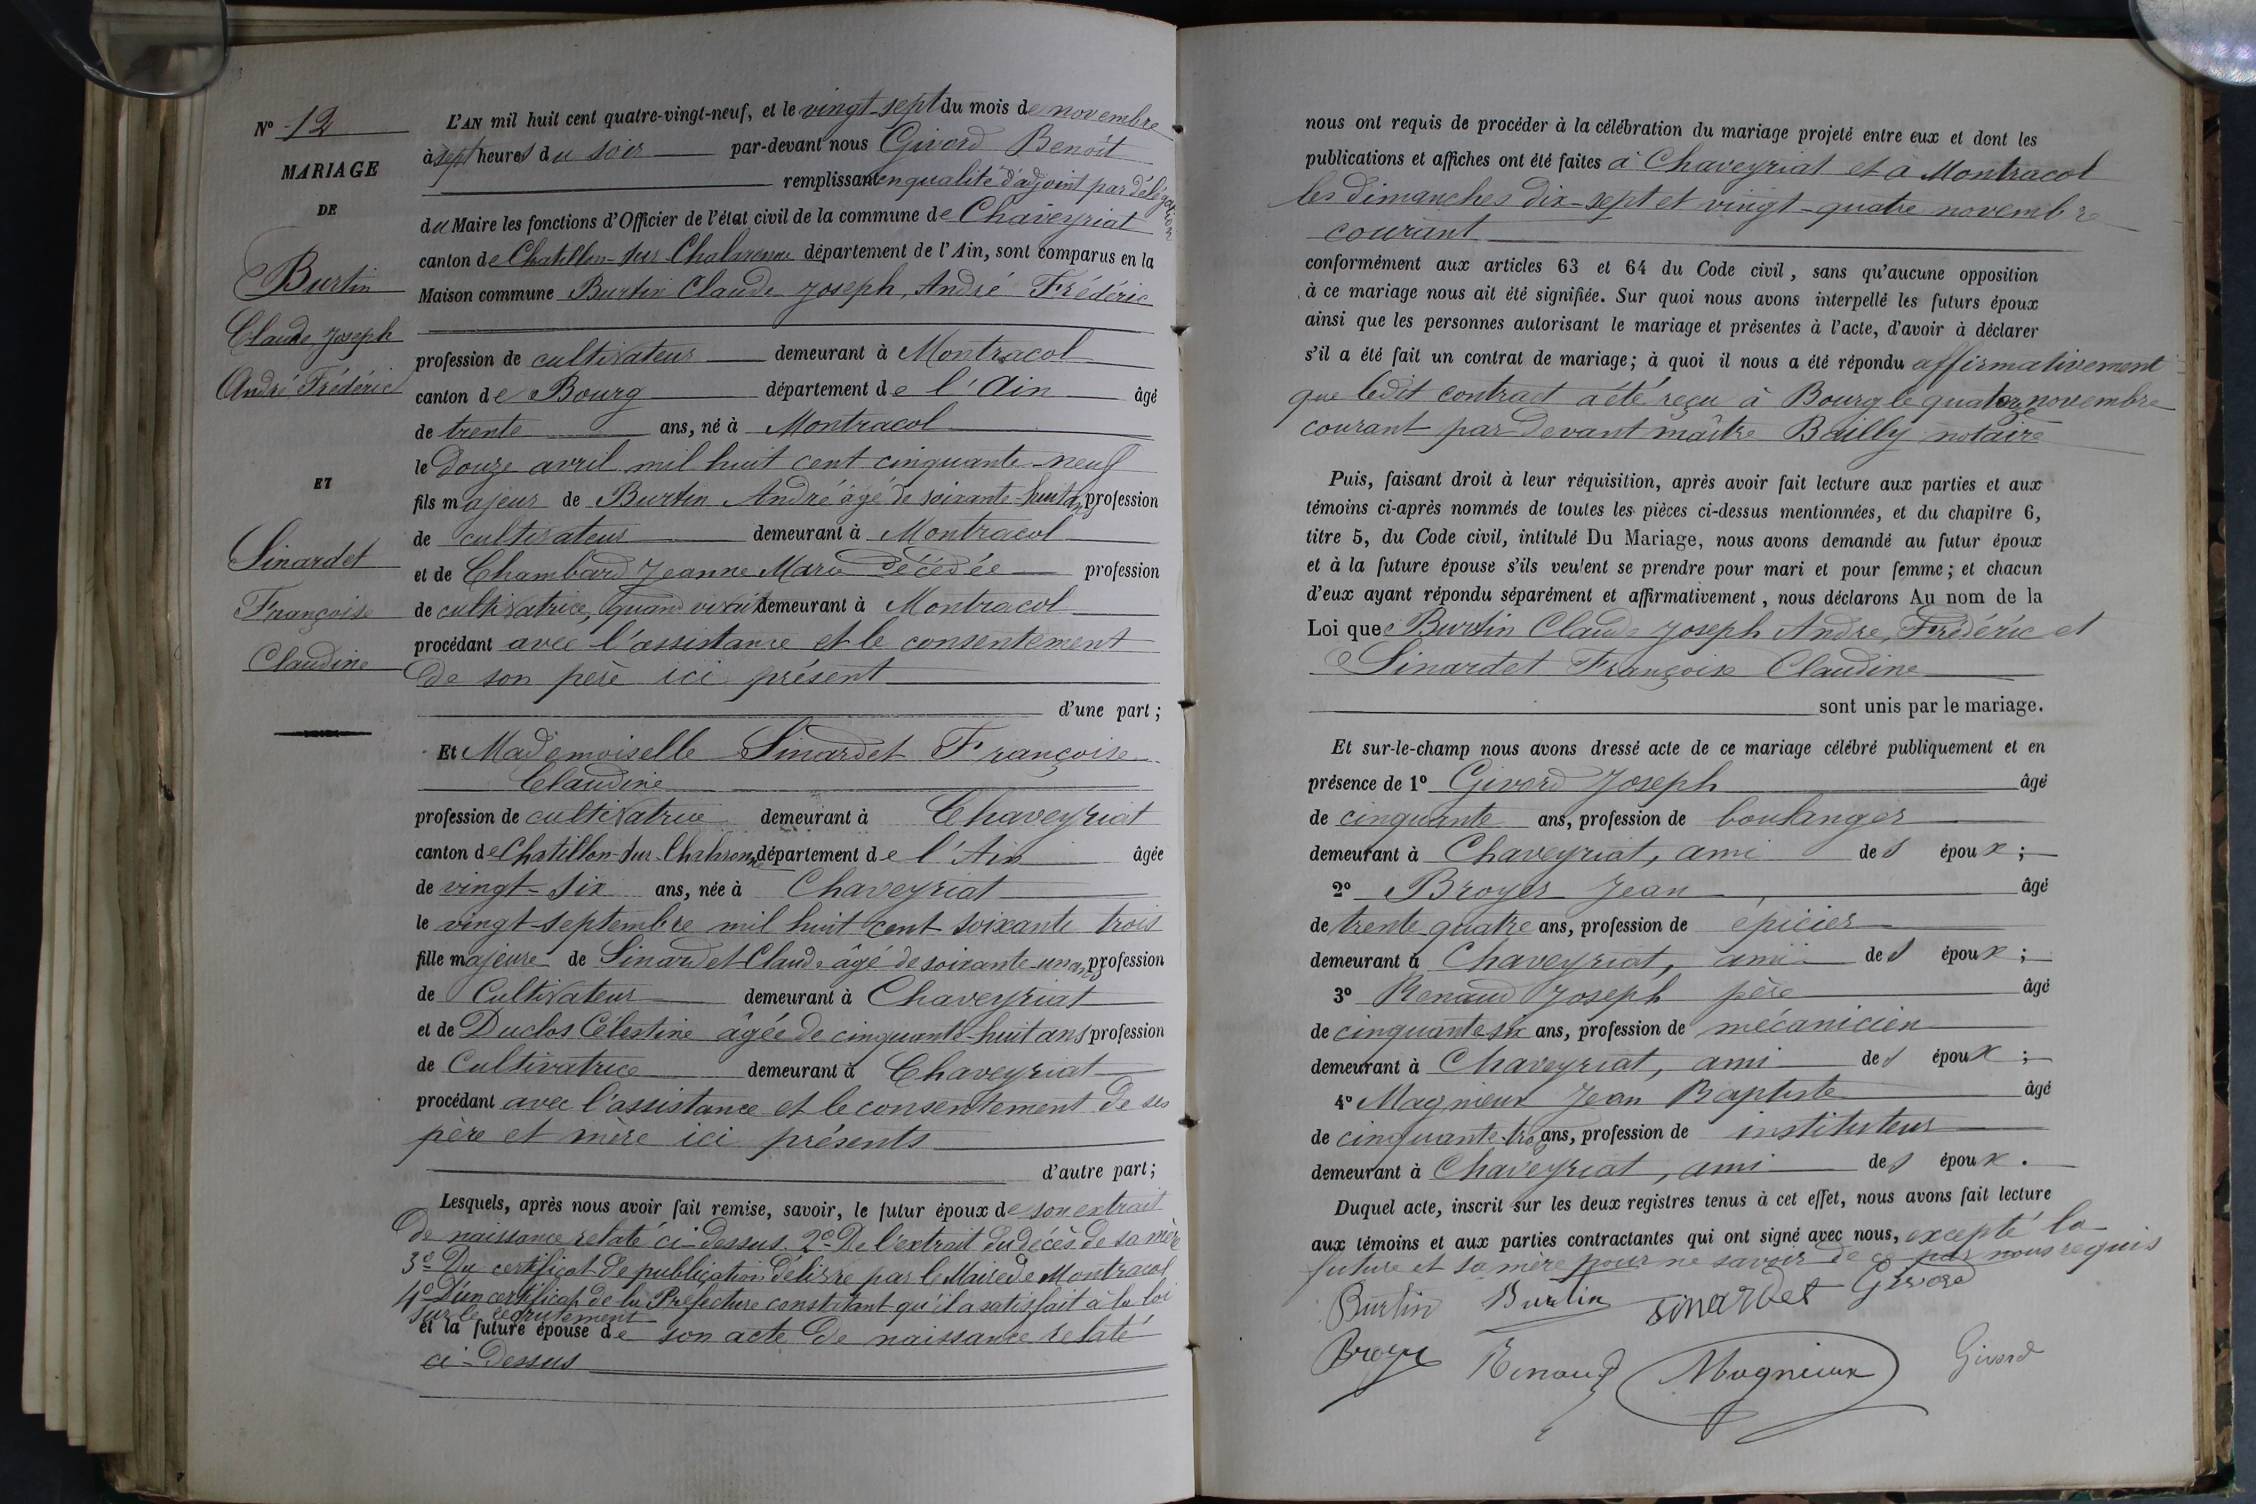 N° 12
MARIAGE
DE
Burtin
Claude Joseph
André Frédéric
ET
Sinardet
Françoise
Claudine
L'AN mil huit cent quatre-vingt-neuf, et le vingt-sept du mois de novembre
à sept heures du soir par-devant nous Givord Benoît
remplissant en qualité d'adjoint par délégation
du Maire les fonctions d'Officier de l'état civil de la commune de Chaveyriat
canton de Chatillon-sur-Chalaronne département de l'Ain, sont comparus en la
Maison commune Burtin Claude Joseph, André Frédéric
profession de cultivateur demeurant à Montracol
canton de Bourg département de l'Ain âgé
de trente ans, né à Montracol
le douze avril mil huit cent cinquante-neuf
fils majeur de Burtin André âgé de soixante-huit ans profession
de cultivateur demeurant à Montracol
et de Chambard Jeanne Marie décédée profession
de cultivatrice, quand vivait demeurant à Montracol
procédant avec l'assistance et le consentement
de son père ici présent
d'une part ;
Et Mademoiselle Sinardet Françoise
Claudine
profession de cultivatrice demeurant à Chaveyriat
canton de Chatillon-sur-Chalaronne département de l'Ain âgée
de vingt-six ans, née à Chaveyriat
le vingt septembre mil huit cent soixante trois
fille majeure de Sinardet Claude âgé de soixante-un ans profession
de Cultivateur demeurant à Chaveyriat
et de Duclos Célestine âgée de cinquante-huit ans profession
de Cultivatrice demeurant à Chaveyriat
procédant avec l'assistance et le consentement de ses
père et mère ici présents
d'autre part ;
Lesquels, après nous avoir fait remise, savoir, le futur époux de son extrait
de naissance relaté ci-dessus. 2° De l'extrait du décès de sa mère
3° Du certificat de publication délivré par le Maire de Montracol
4° D'un certificat de la Préfecture constatant qu'il a satisfait à la loi
sur le recrutement
et la future épouse de son acte de naissance relaté
ci-dessus
nous ont requis de procéder à la célébration du mariage projeté entre eux et dont les
publications et affiches ont été faites à Chaveyriat et à Montracol
les dimanches dix-sept et vingt-quatre novembre
courant
conformément aux articles 63 et 64 du Code civil, sans qu'aucune opposition
à ce mariage nous ait été signifiée. Sur quoi nous avons interpellé les futurs époux
ainsi que les personnes autorisant le mariage et présentes à l'acte, d'avoir à déclarer
s'il a été fait un contrat de mariage ; à quoi il nous a été répondu affirmativement
que ledit contract a été reçu à Bourg le quatorze novembre
courant par devant maître Bailly notaire
Puis, faisant droit à leur réquisition, après avoir fait lecture aux parties et aux
témoins ci-après nommés de toutes les pièces ci-dessus mentionnées, et du chapitre 6,
titre 5, du Code civil, intitulé Du Mariage, nous avons demandé au futur époux
et à la future épouse s'ils veulent se prendre pour mari et pour femme ; et chacun
d'eux ayant répondu séparément et affirmativement, nous déclarons Au nom de la
Loi que Burtin Claude Joseph André, Frédéric et
Sinardet Françoise Claudine
sont unis par le mariage.
Et sur-le-champ nous avons dressé acte de ce mariage célébré publiquement et en
présence de 1° Givord Joseph âgé
de cinquante ans, profession de boulanger
demeurant à Chaveyriat, ami des époux ;
2° Broyer Jean âgé
de trente quatre ans, profession de epicier
demeurant à Chaveyriat, ami des époux ;
3° Renaud Joseph père âgé
de cinquante six ans, profession de mécanicien
demeurant à Chaveyriat, ami des époux ;
4° Magnieux Jean Baptiste âgé
de cinquante-trois ans, profession de instituteur
demeurant à Chaveyriat, ami des époux.
Duquel acte, inscrit sur les deux registres tenus à cet effet, nous avons fait lecture
aux témoins et aux parties contractantes qui ont signé avec nous, excepté la
future et sa mère pour ne savoir de ce par nous requis
Burtin Burtin Sinardet Givord
Broyer Renaud Magnieux Givord